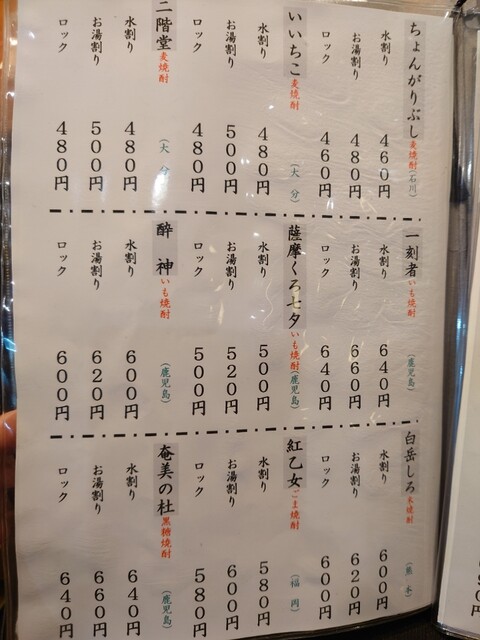 ちょんがりぶし 麦焼酎 (石川)
水割り 460円
お湯割り 480円
ロック 460円
いいちこ 麦焼酎 (大分)
水割り 480円
お湯割り 500円
ロック 480円
二階堂 麦焼酎 (大分)
水割り 480円
お湯割り 500円
ロック 480円
一刻者 いも焼酎 (鹿児島)
水割り 640円
お湯割り 660円
ロック 640円
薩摩くろ七夕 いも焼酎 (鹿児島)
水割り 500円
お湯割り 520円
ロック 500円
酔神 いも焼酎 (鹿児島)
水割り 600円
お湯割り 620円
ロック 600円
白岳しろ 米焼酎 (熊本)
水割り 600円
お湯割り 620円
ロック 600円
紅乙女 ごま焼酎 (福岡)
水割り 580円
お湯割り 600円
ロック 580円
奄美の杜 黒糖焼酎 (鹿児島)
水割り 640円
お湯割り 660円
ロック 640円